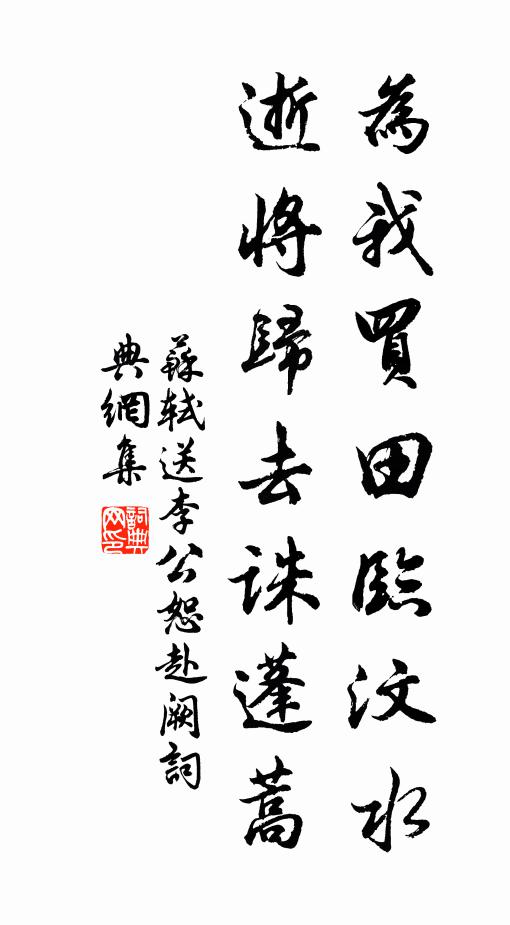 為我買田臨汶水
逝將歸去誅蓬蒿
蘇軾送李公恕赴闕詞
典網集
詞典
网印